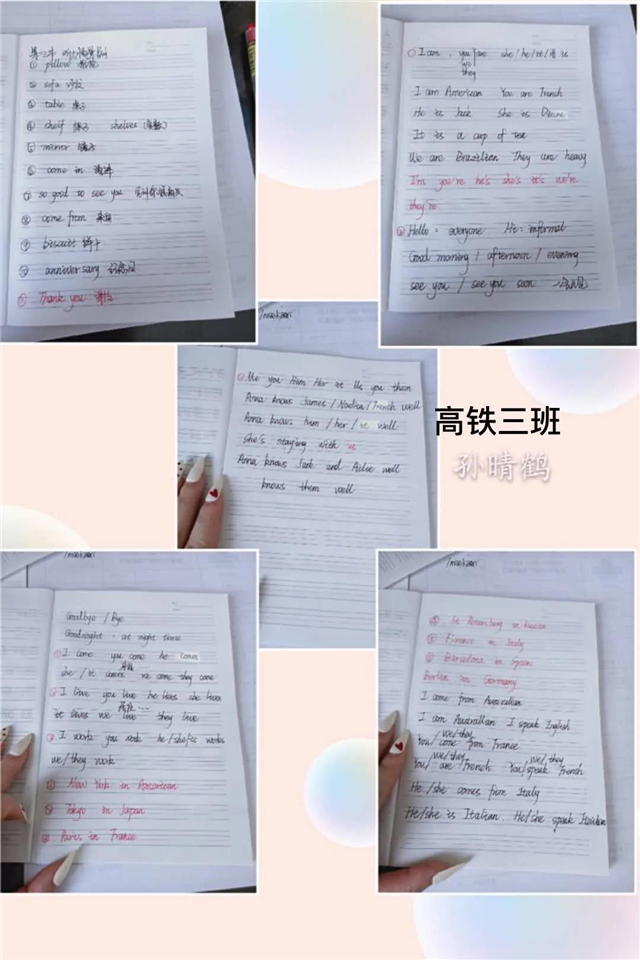 ① pillow
② sofa 沙发
③ table 桌子
④ shelf 架子 shelves (复数)
⑤ mirror 镜子
⑥ come in 请进
⑦ so good to see you
⑧ come from 来自
⑨ biscuit 饼干
⑩ anniversary 纪念日
Thank you 谢谢
① I am , you are she / he / it / 谁 is
we
they
I am American You are French
He is Jack She is Diane
It is a cup of tea
We are Brazilian They are heavy
I'm you're he's she's it's we're
they're
② Hello : everyone Hi : informal
Good morning / afternoon / evening
see you / see you soon
Imagination
Me you Him Her it Us you them
Anna knows James / Noelia / French well
Anna knows him / her / it well
she's staying with us
Anna knows Jack and Alice well
knows them well
高铁三班
孙晴鹤
Goodbye / Bye
Goodnight : at night time
① I come you come he comes
she / it comes we come they come
② I live you live he lives she lives
it lives we live they live
③ I work you work he/she/it works
we/they work
① New York in American
② Tokyo in Japan
③ Paris in France
④ St Petersburg in Russia
⑤ Firenze in Italy
⑥ Barcelona in Spain
Berlin in Germany
I come from Australian
I am Australian I speak English
we/they
You/ come from France
we/they we/they
You/ are French You/speak French
He /she comes from Italy
He/she is Italian. He/she speak Italian